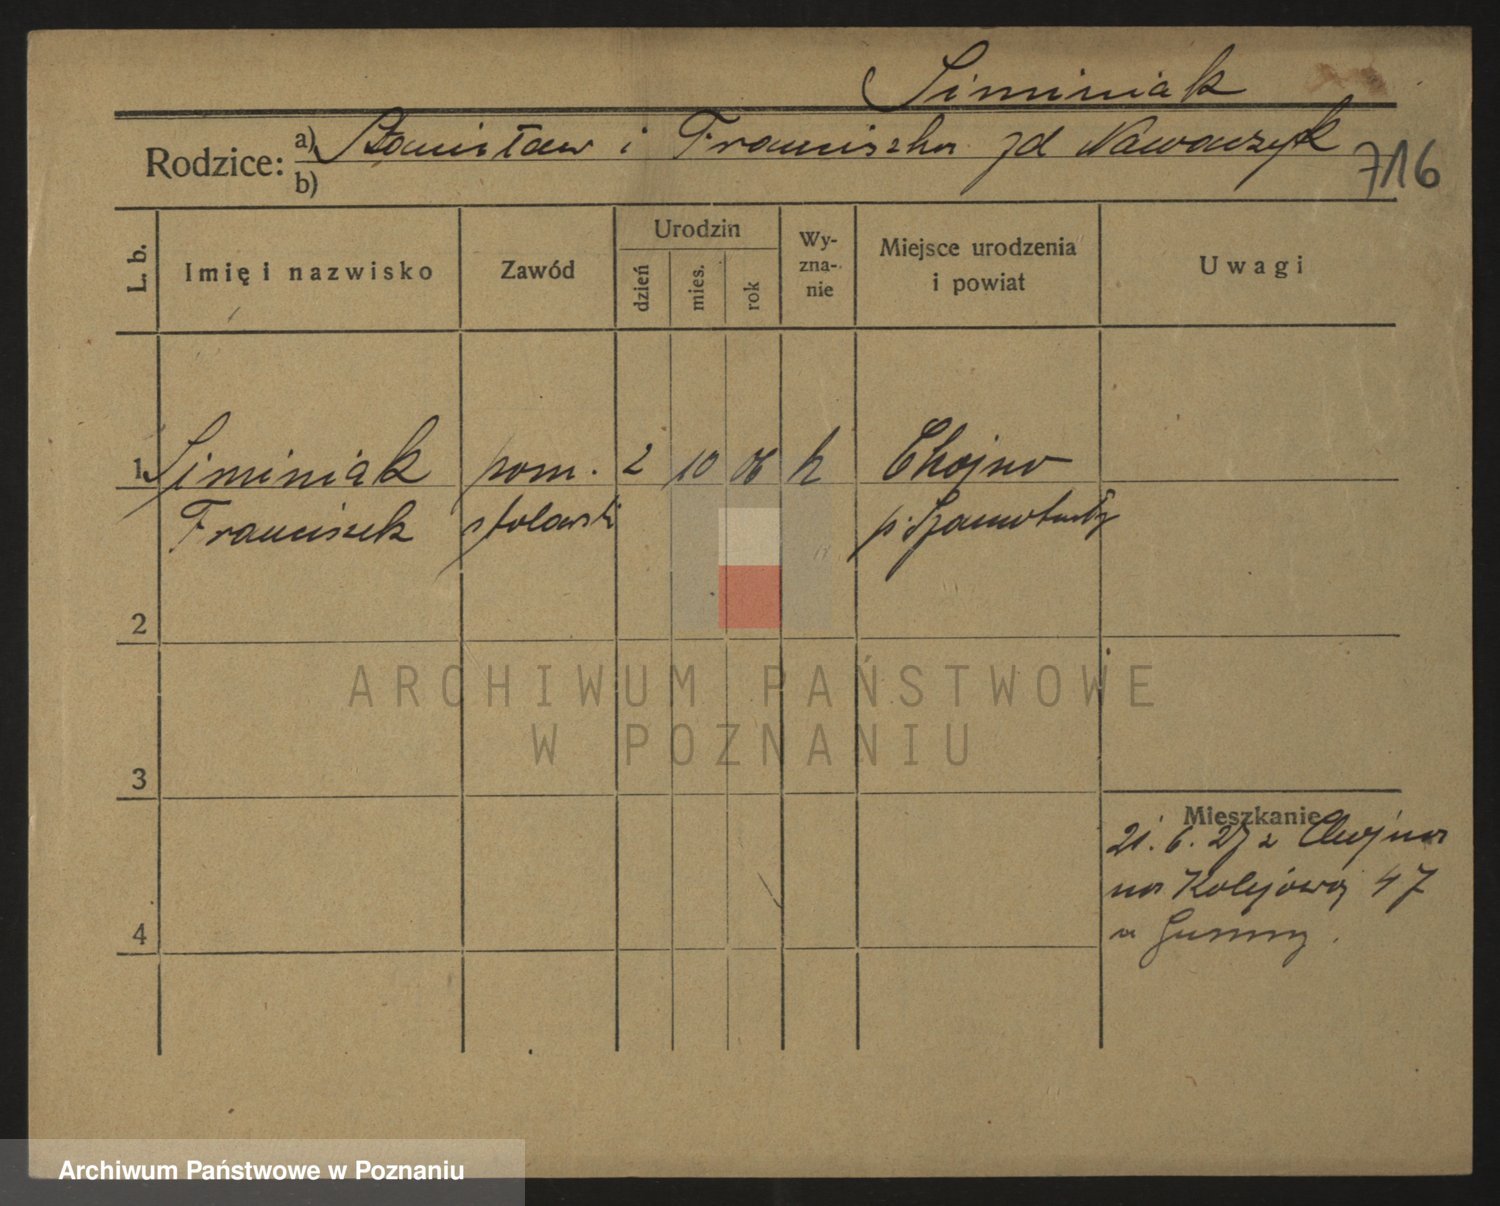 Siminiak
Rodzice: a) Stanisław i Franciszka zd Nawawczyk
b)
716
L. b. Imię i nazwisko Zawód Urodzin dzień mies. rok Wy-zna-nie Miejsce urodzenia i powiat Uwagi
1 Siminiak pom. 2 10 06 k Chojno
Franciszek stolarski p. Szamotuły
2
ARCHIWUM PAŃSTWOWE
W POZNANIU
3
Mieszkanie
21. 6. 27 z Chojna
na Kolejową 47
u
4
Archiwum Państwowe w Poznaniu